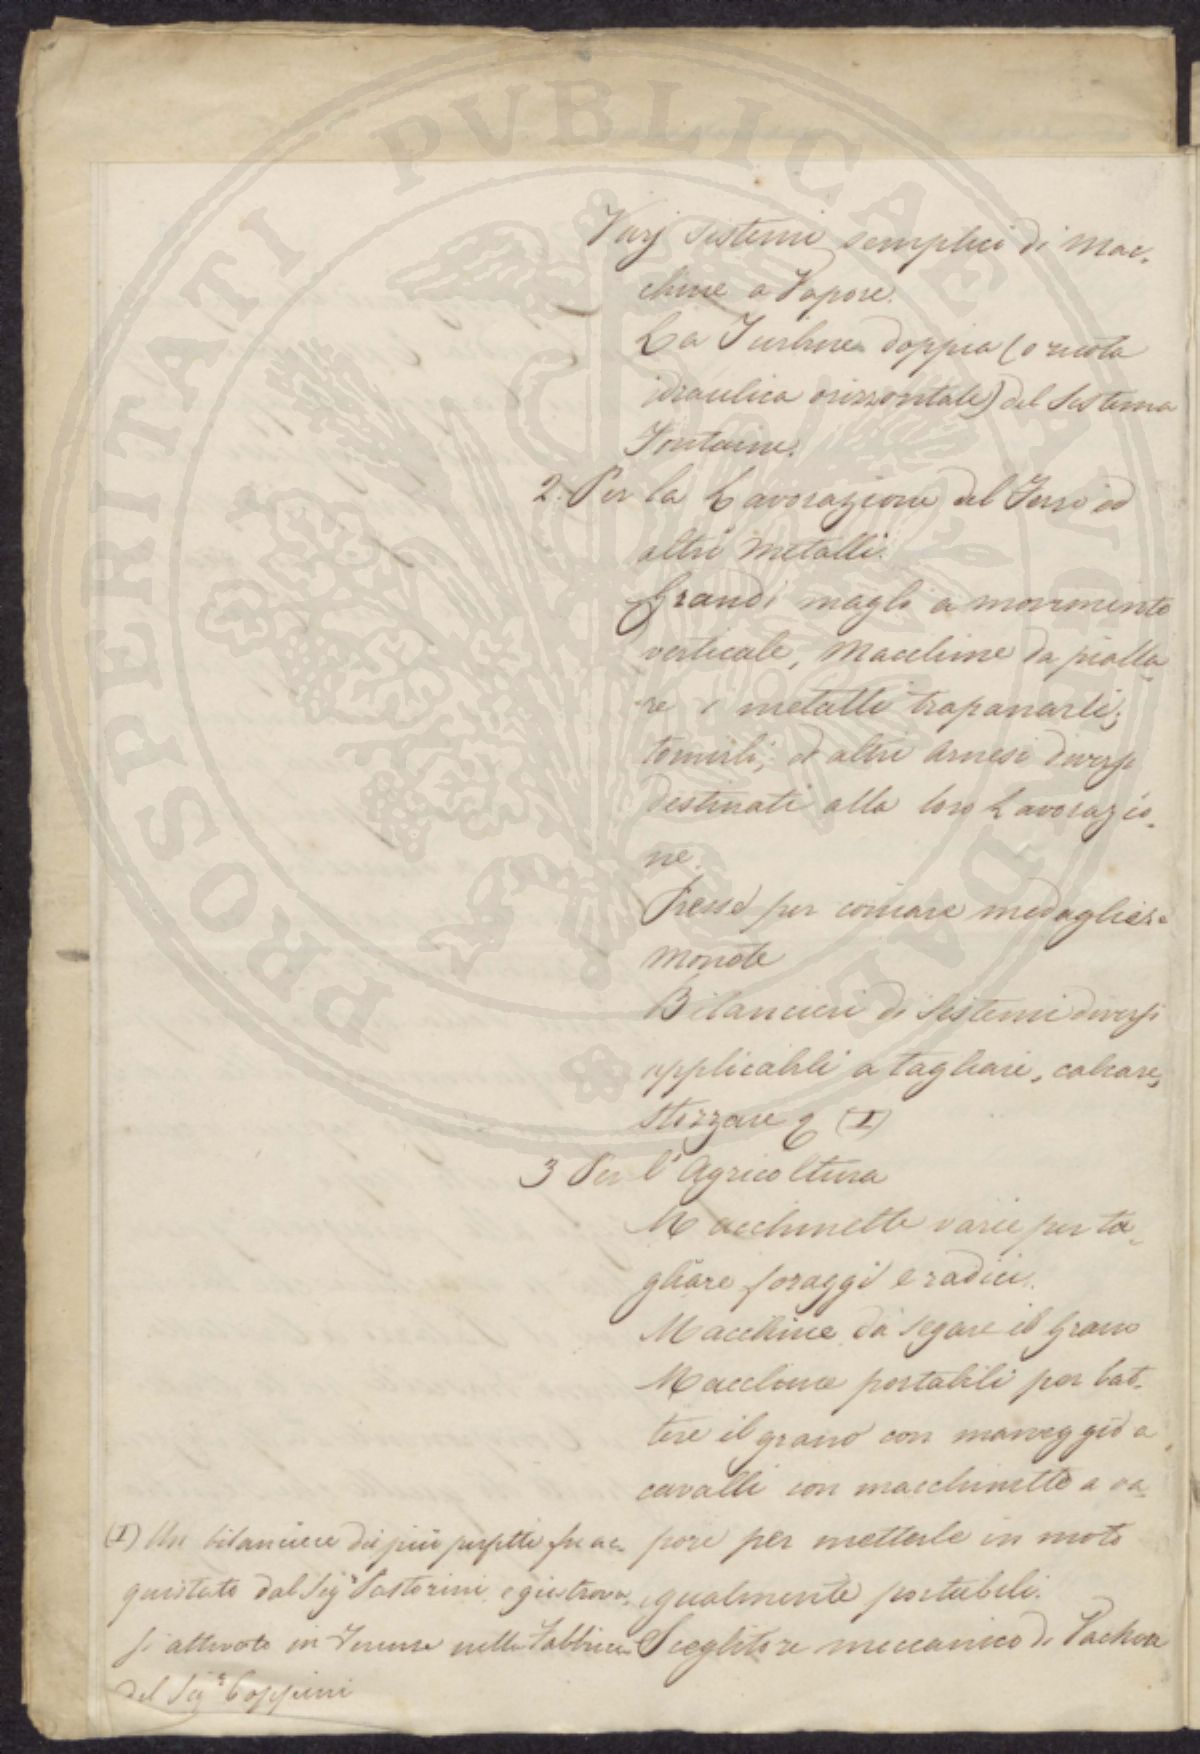 Varj sistemi semplici di Mac-
chine a Vapore.
La Turbine doppia (o ruota
idraulica orizzontale) del Sistema
Fontaine.
2. Per la Lavorazione del Ferro ed
altri Metalli.
Grandi magli a movimento
verticale, Macchine da pialla-
re i metalli trapanarli,
tornirli, ed altri Arnesi diversi
destinati alla loro Lavorazio-
ne.
Presse per coniare medaglie e
Monete
Bilancieri di Sistemi diversi
applicabili a tagliare, calcare,
stozzare (1)
3 Per l'Agricoltura
Macchinette varie per ta-
gliare foraggi e radici.
Macchine da segare il Grano
Macchine portabili per bat-
tere il grano con maneggio a
cavalli con macchinette a va-
pore per metterle in moto
egualmente portabili.
Sceglitore meccanico di Vachon
(1) Un bilanciere dei più perfetti fu ac-
quistato dal Sigr Pastorini, e già trova-
si attivato in Firenze nella Fabbrica
del Sigr Coppini
PROSPERITATI PUBLICAE AUGENDAE